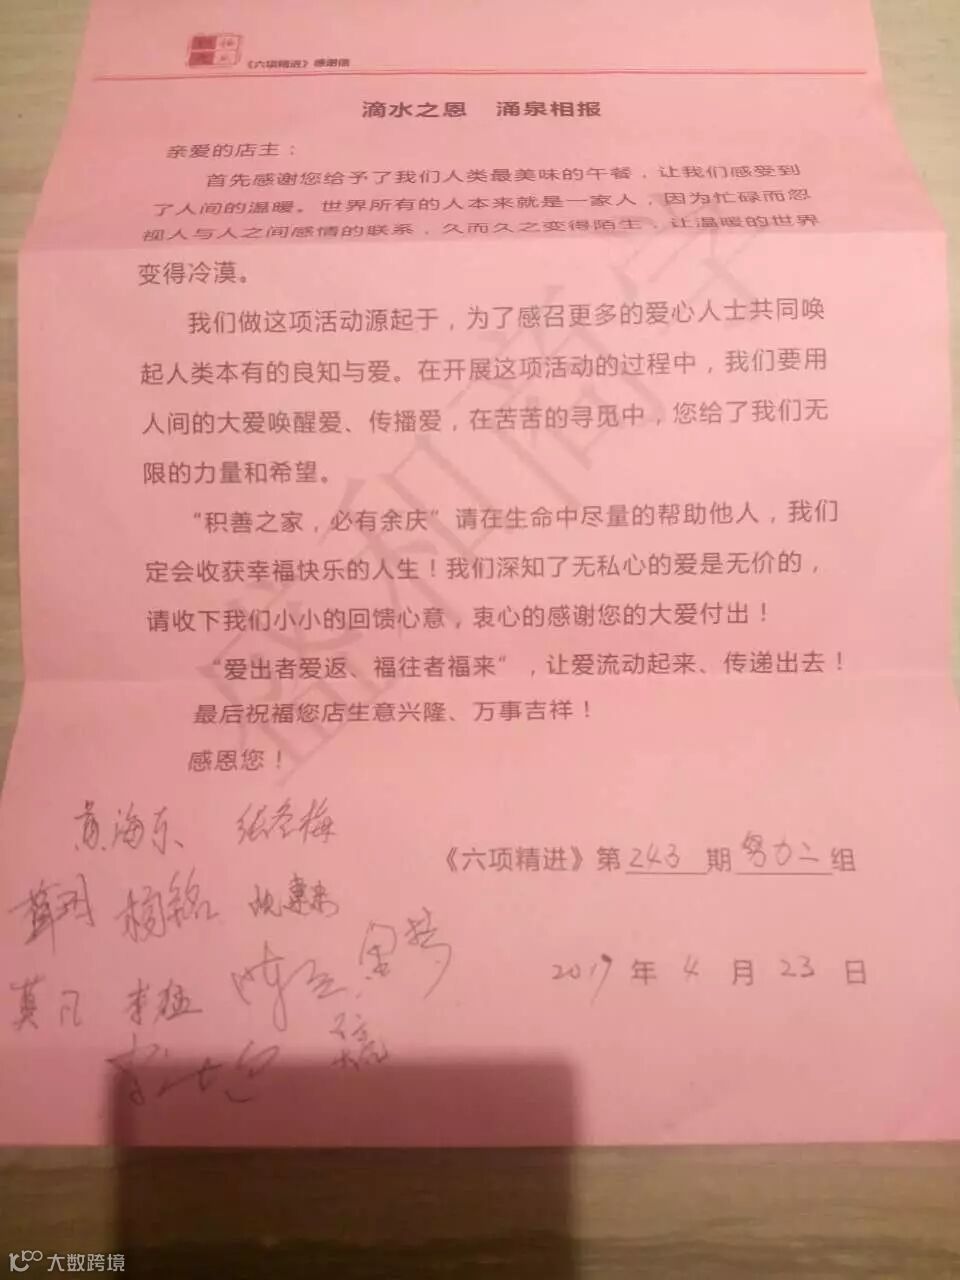 《六项精进》感谢信
滴水之恩 涌泉相报
亲爱的店主：
首先感谢您给予了我们人类最美味的午餐，让我们感受到
了人间的温暖。世界所有的人本来就是一家人，因为忙碌而忽
视人与人之间感情的联系，久而久之变得陌生，让温暖的世界
变得冷漠。
我们做这项活动源起于，为了感召更多的爱心人士共同唤
起人类本有的良知与爱。在开展这项活动的过程中，我们要用
人间的大爱唤醒爱、传播爱，在苦苦的寻觅中，您给了我们无
限的力量和希望。
“积善之家，必有余庆”请在生命中尽量的帮助他人，我们
定会收获幸福快乐的人生！我们深知了无私心的爱是无价的，
请收下我们小小的回馈心意，衷心的感谢您的大爱付出！
“爱出者爱返、福往者福来”，让爱流动起来、传递出去！
最后祝福您店生意兴隆、万事吉祥！
感恩您！
黄海东 张冬梅
《六项精进》第243期努力二组
莫凡 李猛
2019年4月23日
盛和商学
大数跨境